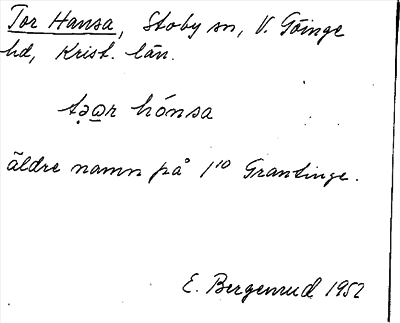 Tor Hansa, Stoby sn, V. Göinge
hd, Krist. län.
tọa̲r hónsa
äldre namn på 1¹⁰ Grantinge.
E. Bergenrud 1952